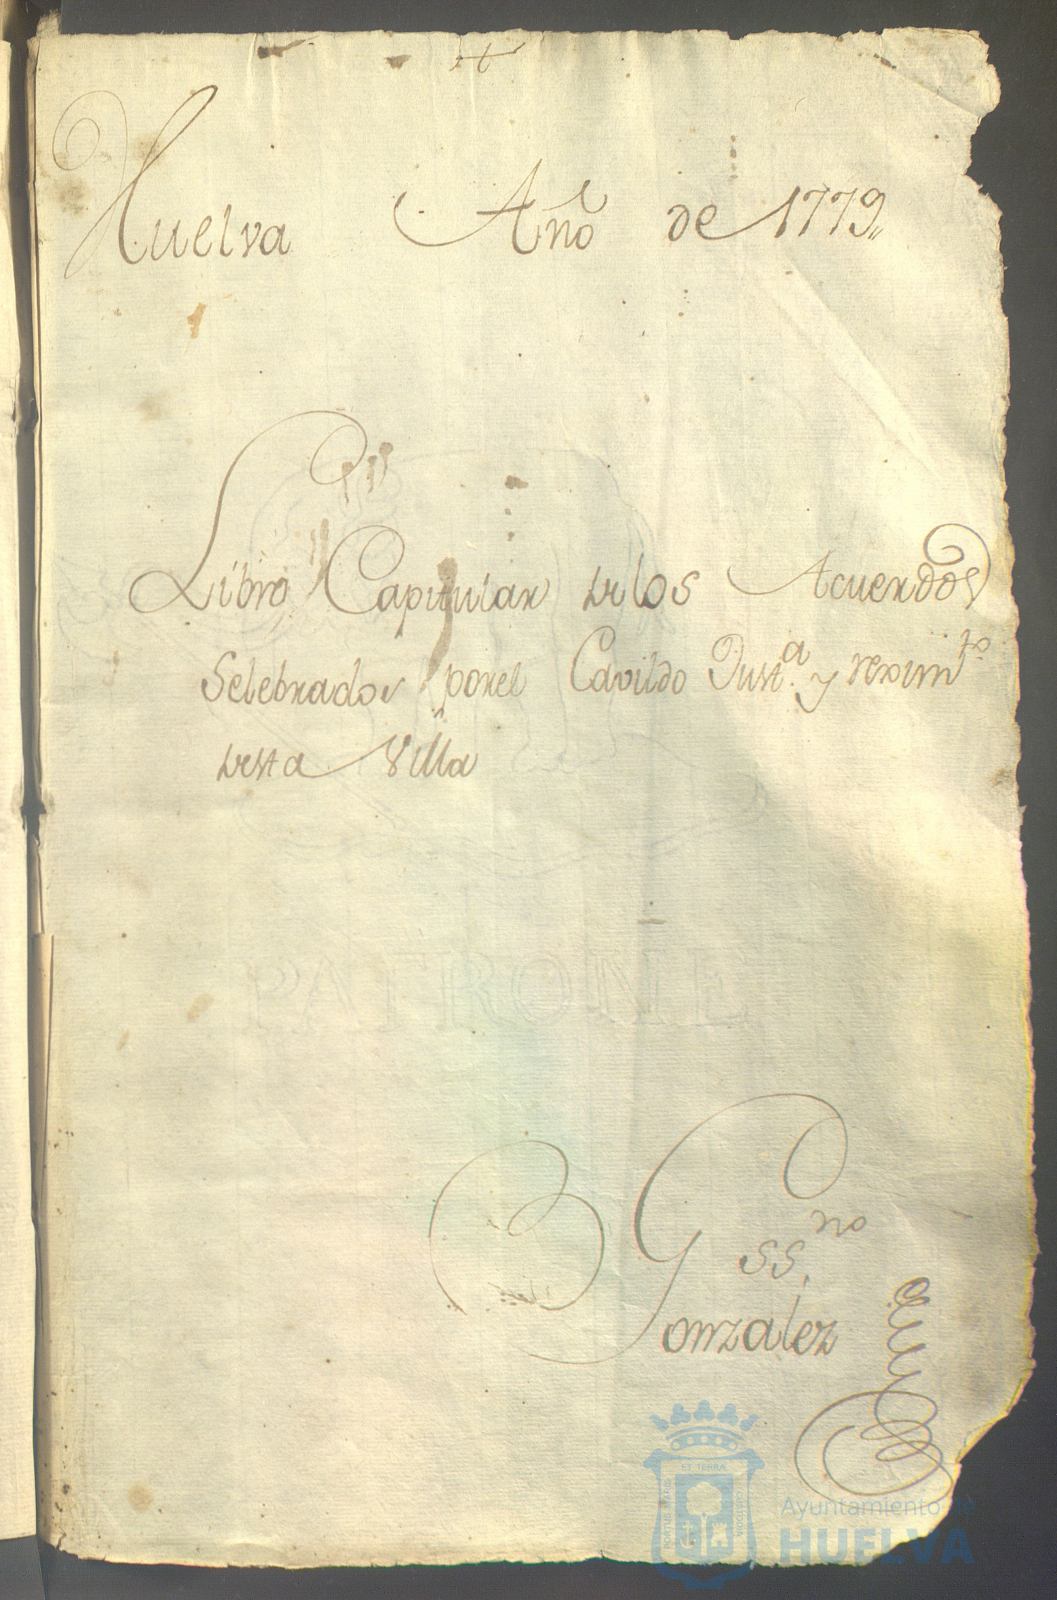 +
Huelva Año de 1779,,
Libro Capitular de los Acuerdos
Selebrados por el Cavildo Just.ª y reximto
desta Villa
SS.no
Gonzalez
PATRONE
ET TERRÆ
PORTUS MARIS
CUSTODIA
Ayuntamiento de
HUELVA